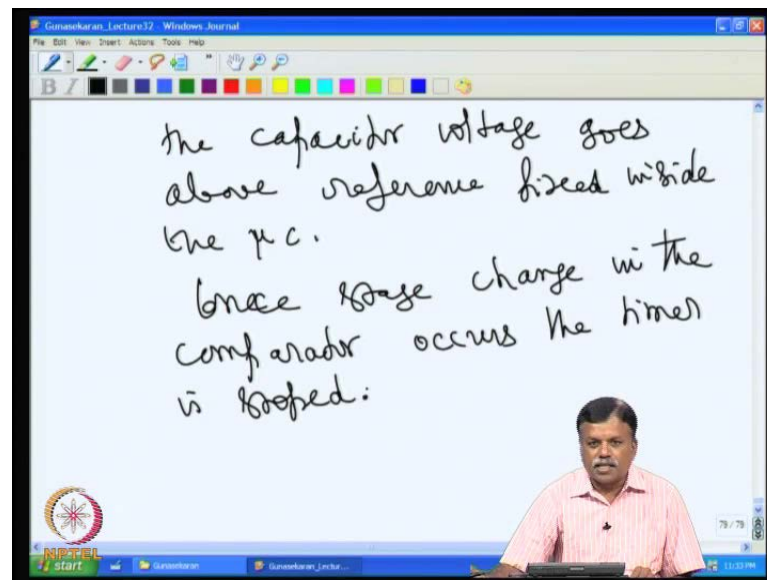 Gunasekaran_Lecture32 - Windows Journal
File Edit View Insert Actions Tools Help
B I
the capacitor voltage goes
above reference fixed inside
the μc.
Once stage change in the
comparator occurs the timer
is stoped.
79 / 79
NPTEL
start Gunasekaran Gunasekaran_Lectur... 11:33 PM